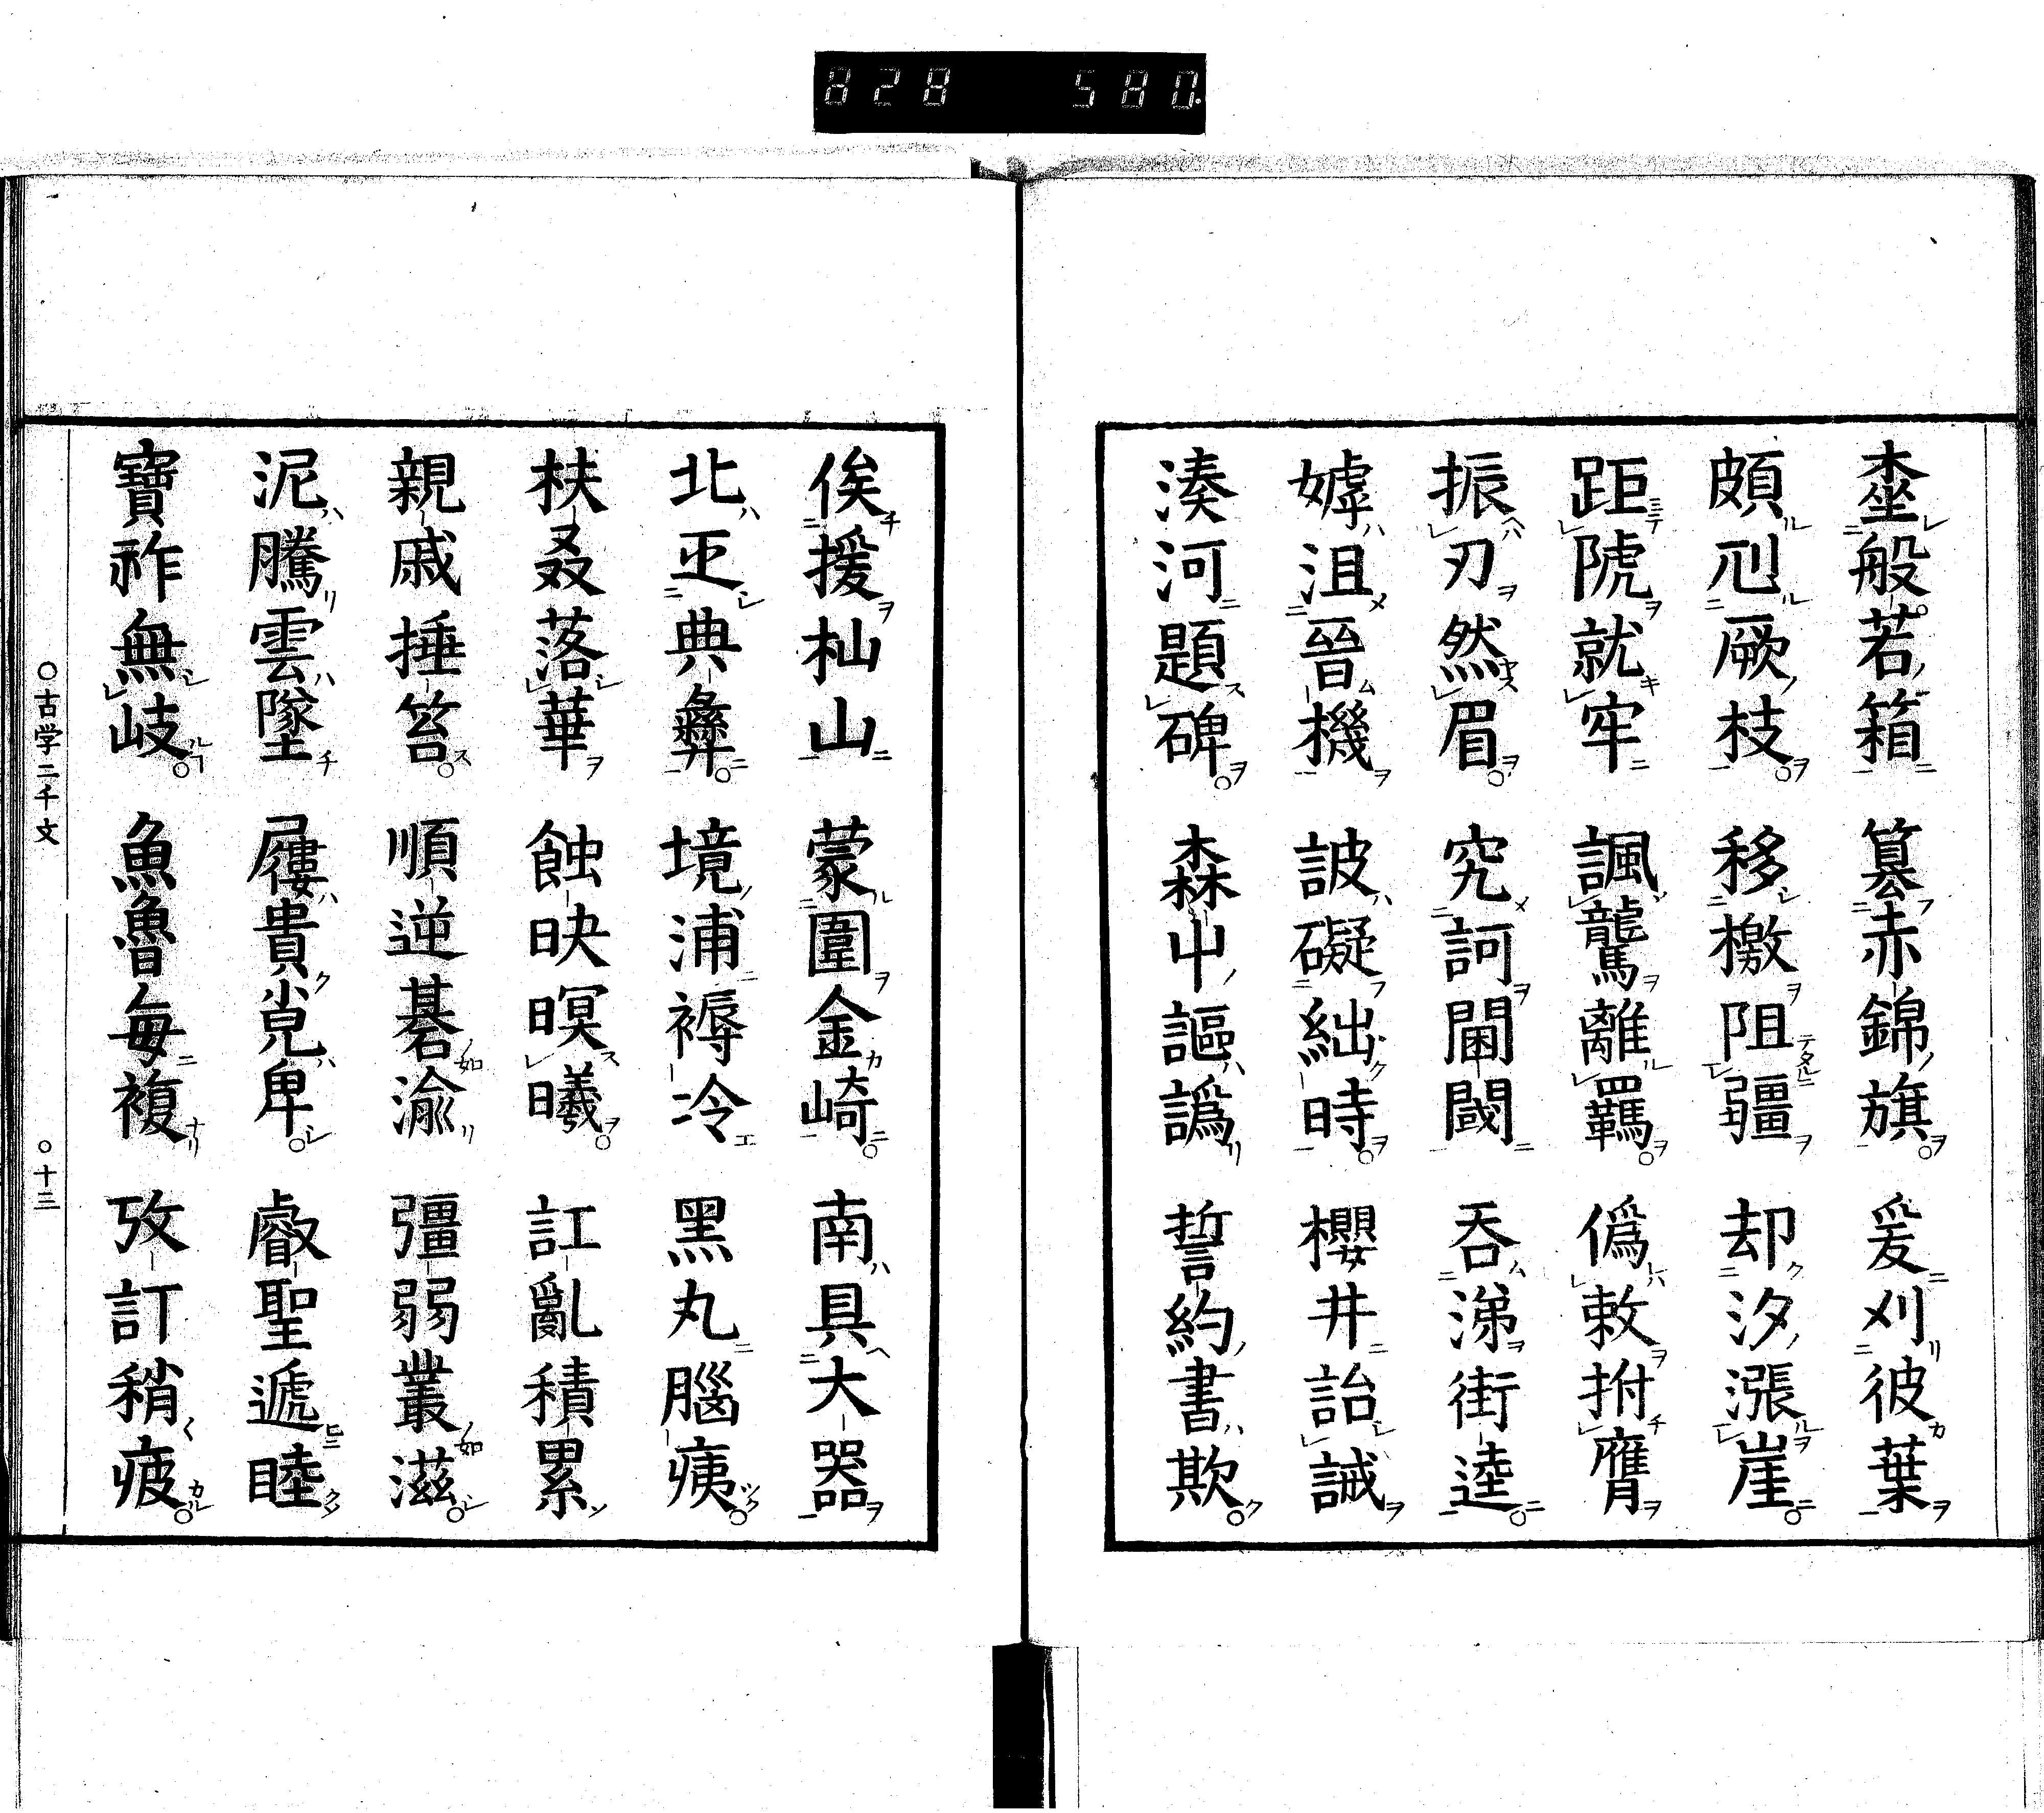 828 580
桽般若箱 簒赤錦旗 爰刈彼葉
頗刓厥枝 移檄阻疆 却汐漲崖
距虓就牢 諷驚離羈 偽敕拊膺
振刃然眉 究訶閫閾 呑涕街逵
嫭沮晉機 詖礙絀時 櫻井詒誡
湊河題碑 森屮謳譌 誓約書欺
俟援杣山 蒙圍金崎 南具大器
北疋典彝 境浦褥冷 黑丸腦痍
扶叒落華 蝕昳暝曦 訌亂積累
親戚捶笞 順逆碁渝 彊弱叢滋
泥騰雲墜 屨貴尡卑 叡聖遞睦
寶祚無岐 魚魯毎複 攷訂稍疲
○古学二千文 ○十三